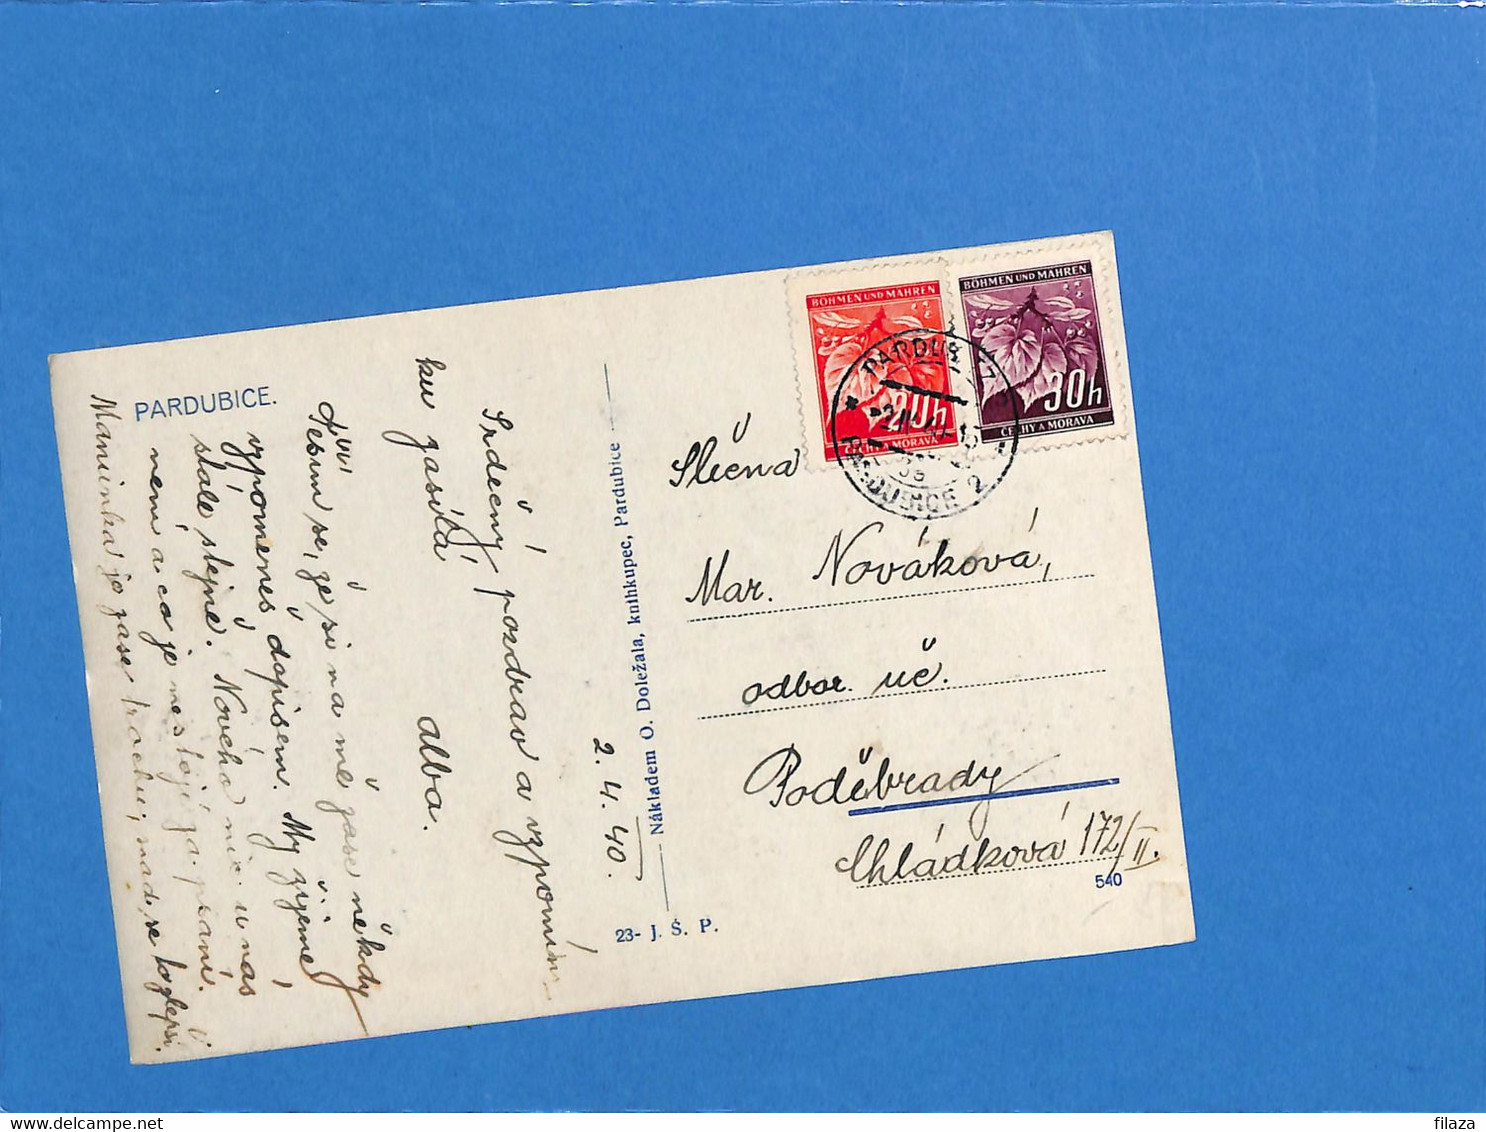 PARDUBICE.
2. 4. 40.
Srdečný pozdrav a vzpomín-
ku zasílá
alba.
Těším se, že si na mě zase někdy
vzpomeneš dopisem. My žijeme
stále stejně. Nového nic u nás
není a co je nestojí za psaní.
Maminka je zase trochu, snad se to zlepší.
Nákladem O. Doležala, knihkupec, Pardubice
23- J. Š. P.
BÖHMEN UND MÄHREN
20h
ČECHY A MORAVA
BÖHMEN UND MÄHREN
30h
ČECHY A MORAVA
PARDUBITZ
PARDUBICE 2
Slečna
Mar. Nováková,
odbor. uč.
Poděbrady
Chládková 172/II.
540
filaza
www.delcampe.net